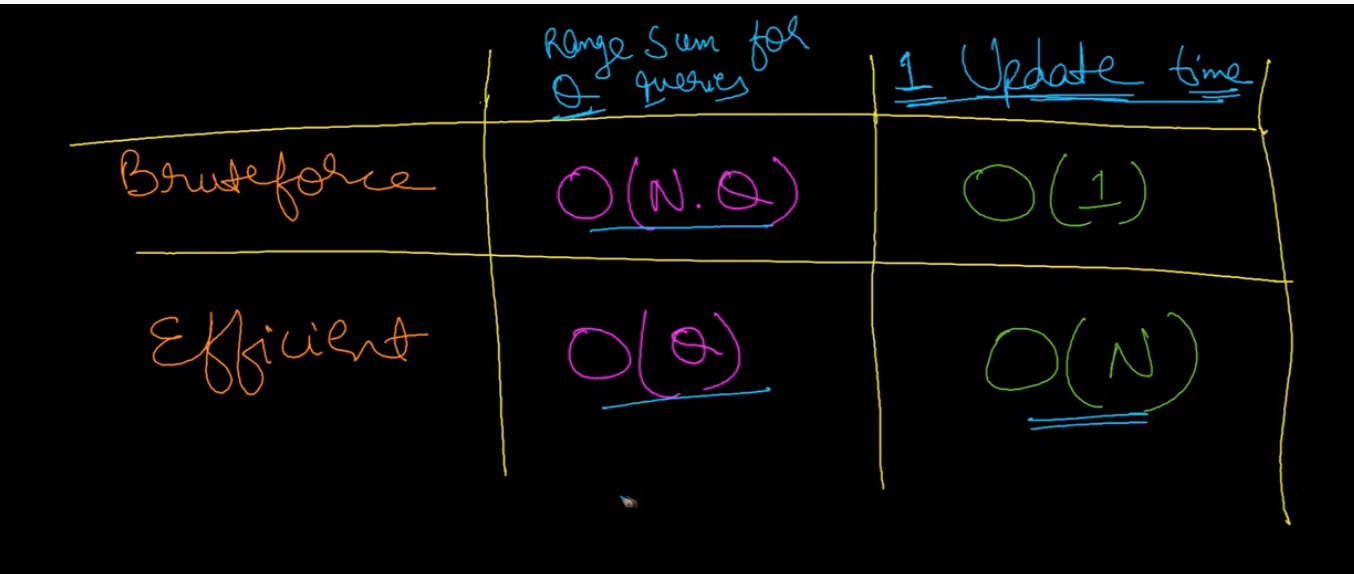 Range Sum for
Q queries
1 Update time
Bruteforce
O(N.Q)
O(1)
Efficient
O(Q)
O(N)